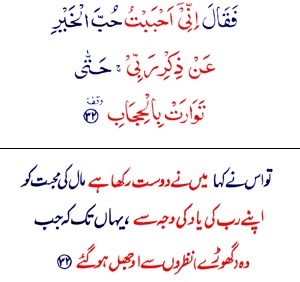 فَقَالَ اِنِّیْۤ اَحْبَبْتُ حُبَّ الْخَیْرِ
عَنْ ذِكْرِ رَبِّیْ ۚ حَتّٰى
تَوَارَتْ بِالْحِجَابِ ۥوقفة ﴿۳۲﴾
تو اس نے کہا میں نے دوست رکھا ہے مال کی محبت کو
اپنے رب کی یاد کی وجہ سے ، یہاں تک کہ جب
وہ (گھوڑے) نظروں سے اوجھل ہو گئے ﴿۳۲﴾